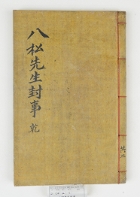 八松先生封事 乾